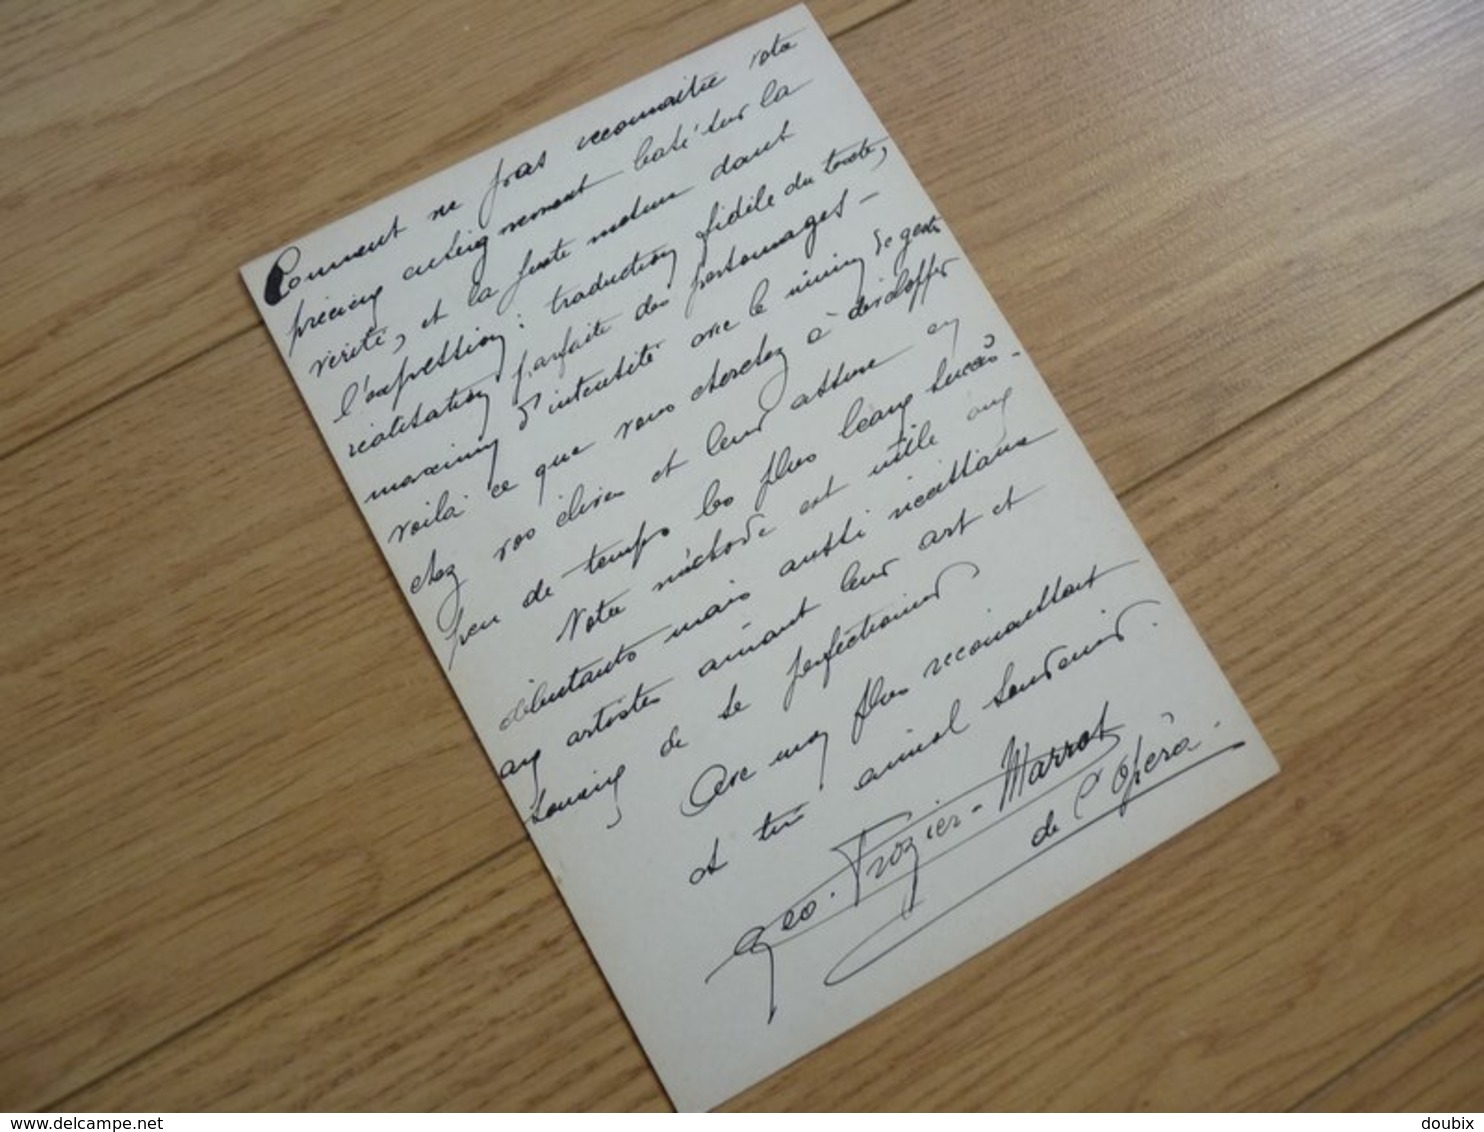 Comment ne pas reconnaitre votre
précieux enseignement basé sur la
vérité, et la juste mesure dans
l'expression : traduction fidèle du texte,
réalisation parfaite des personnages -
maximum d'intensité avec le minimum de gestes
voilà ce que vous cherchez à développer
chez vos élèves et leur assure en
peu de temps les plus beaux succès -
Votre méthode est utile aux
débutants mais aussi nécessaire
aux artistes aimant leur art et
soucieux de se perfectionner
Avec mon plus reconnaissant
et très amical souvenir.
Geo. Frozier-Marrot
de l'Opéra.
www.delcampe.net
doubix